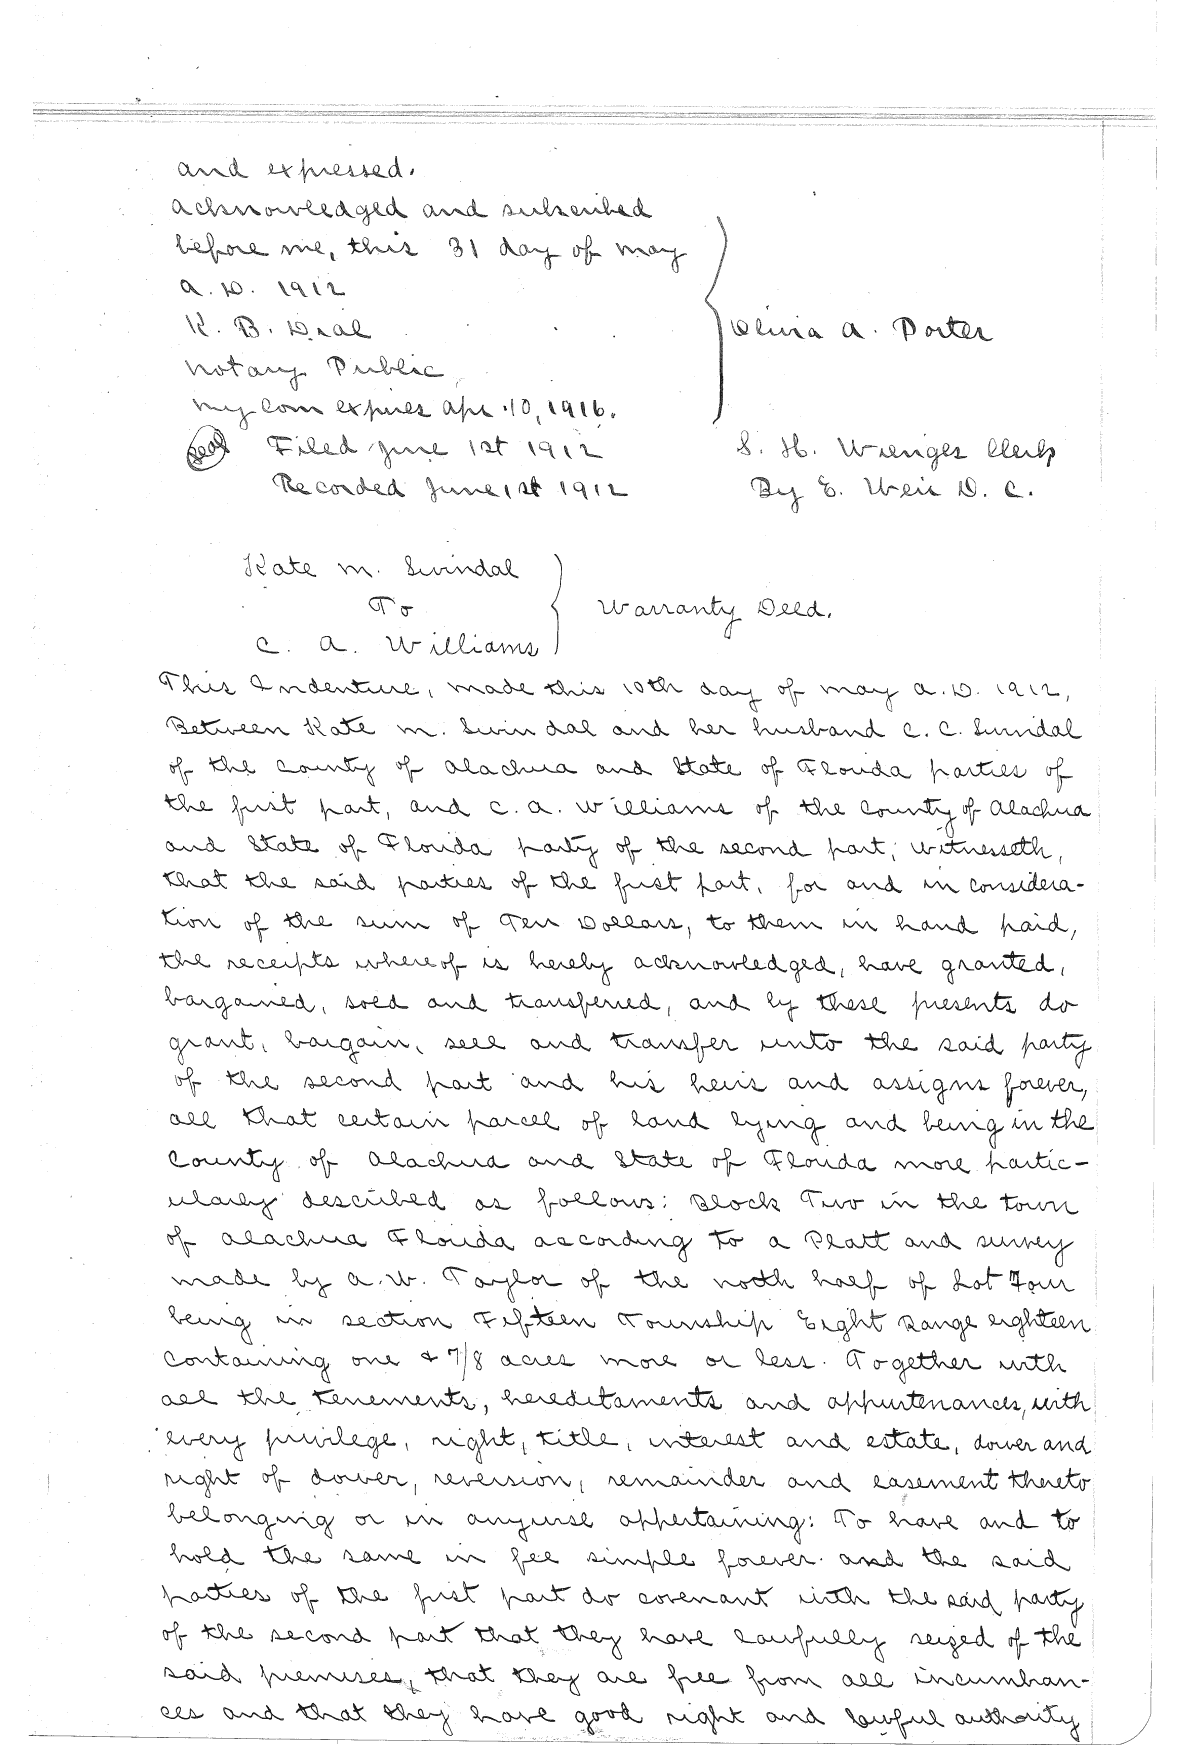 and expressed.
acknowledged and subscribed
before me, this 31 day of may
a. D. 1912
K. B. Dial
notary Public
my com expires apr. 10, 1916.
Olivia A. Porter
Seal Filed June 1st 1912
S. H. Wienges Clerk
Recorded June 1st 1912
By E. Weir D. C.
Kate M. Swindal
To
C. A. Williams
Warranty Deed.
This Indenture, made this 10th day of may a. D. 1912,
Between Kate M. Swindal and her husband C. C. Swindal
of the County of Alachua and State of Florida parties of
the first part, and C. A. Williams of the County of Alachua
and State of Florida party of the second part; witnesseth,
that the said parties of the first part, for and in considera-
tion of the sum of Ten Dollars, to them in hand paid,
the receipts whereof is hereby acknowledged, have granted,
bargained, sold and transferred, and by these presents do
grant, bargain, sell and transfer unto the said party
of the second part and his heirs and assigns forever,
all that certain parcel of land lying and being in the
County of Alachua and State of Florida more partic-
ularly described as follows: Block Two in the town
of Alachua Florida according to a Platt and survey
made by A. W. Taylor of the north half of Lot Four
being in section Fifteen Township Eight Range eighteen
containing one & 7/8 acres more or less. Together with
all the tenements, hereditaments and appurtenances, with
every privilege, right, title, interest and estate, dower and
right of dower, reversion, remainder and easement thereto
belonging or in anywise appertaining: To have and to
hold the same in fee simple forever. and the said
parties of the first part do covenant with the said party
of the second part that they have lawfully seized of the
said premises, that they are free from all incumbran-
ces and that they have good right and lawful authority